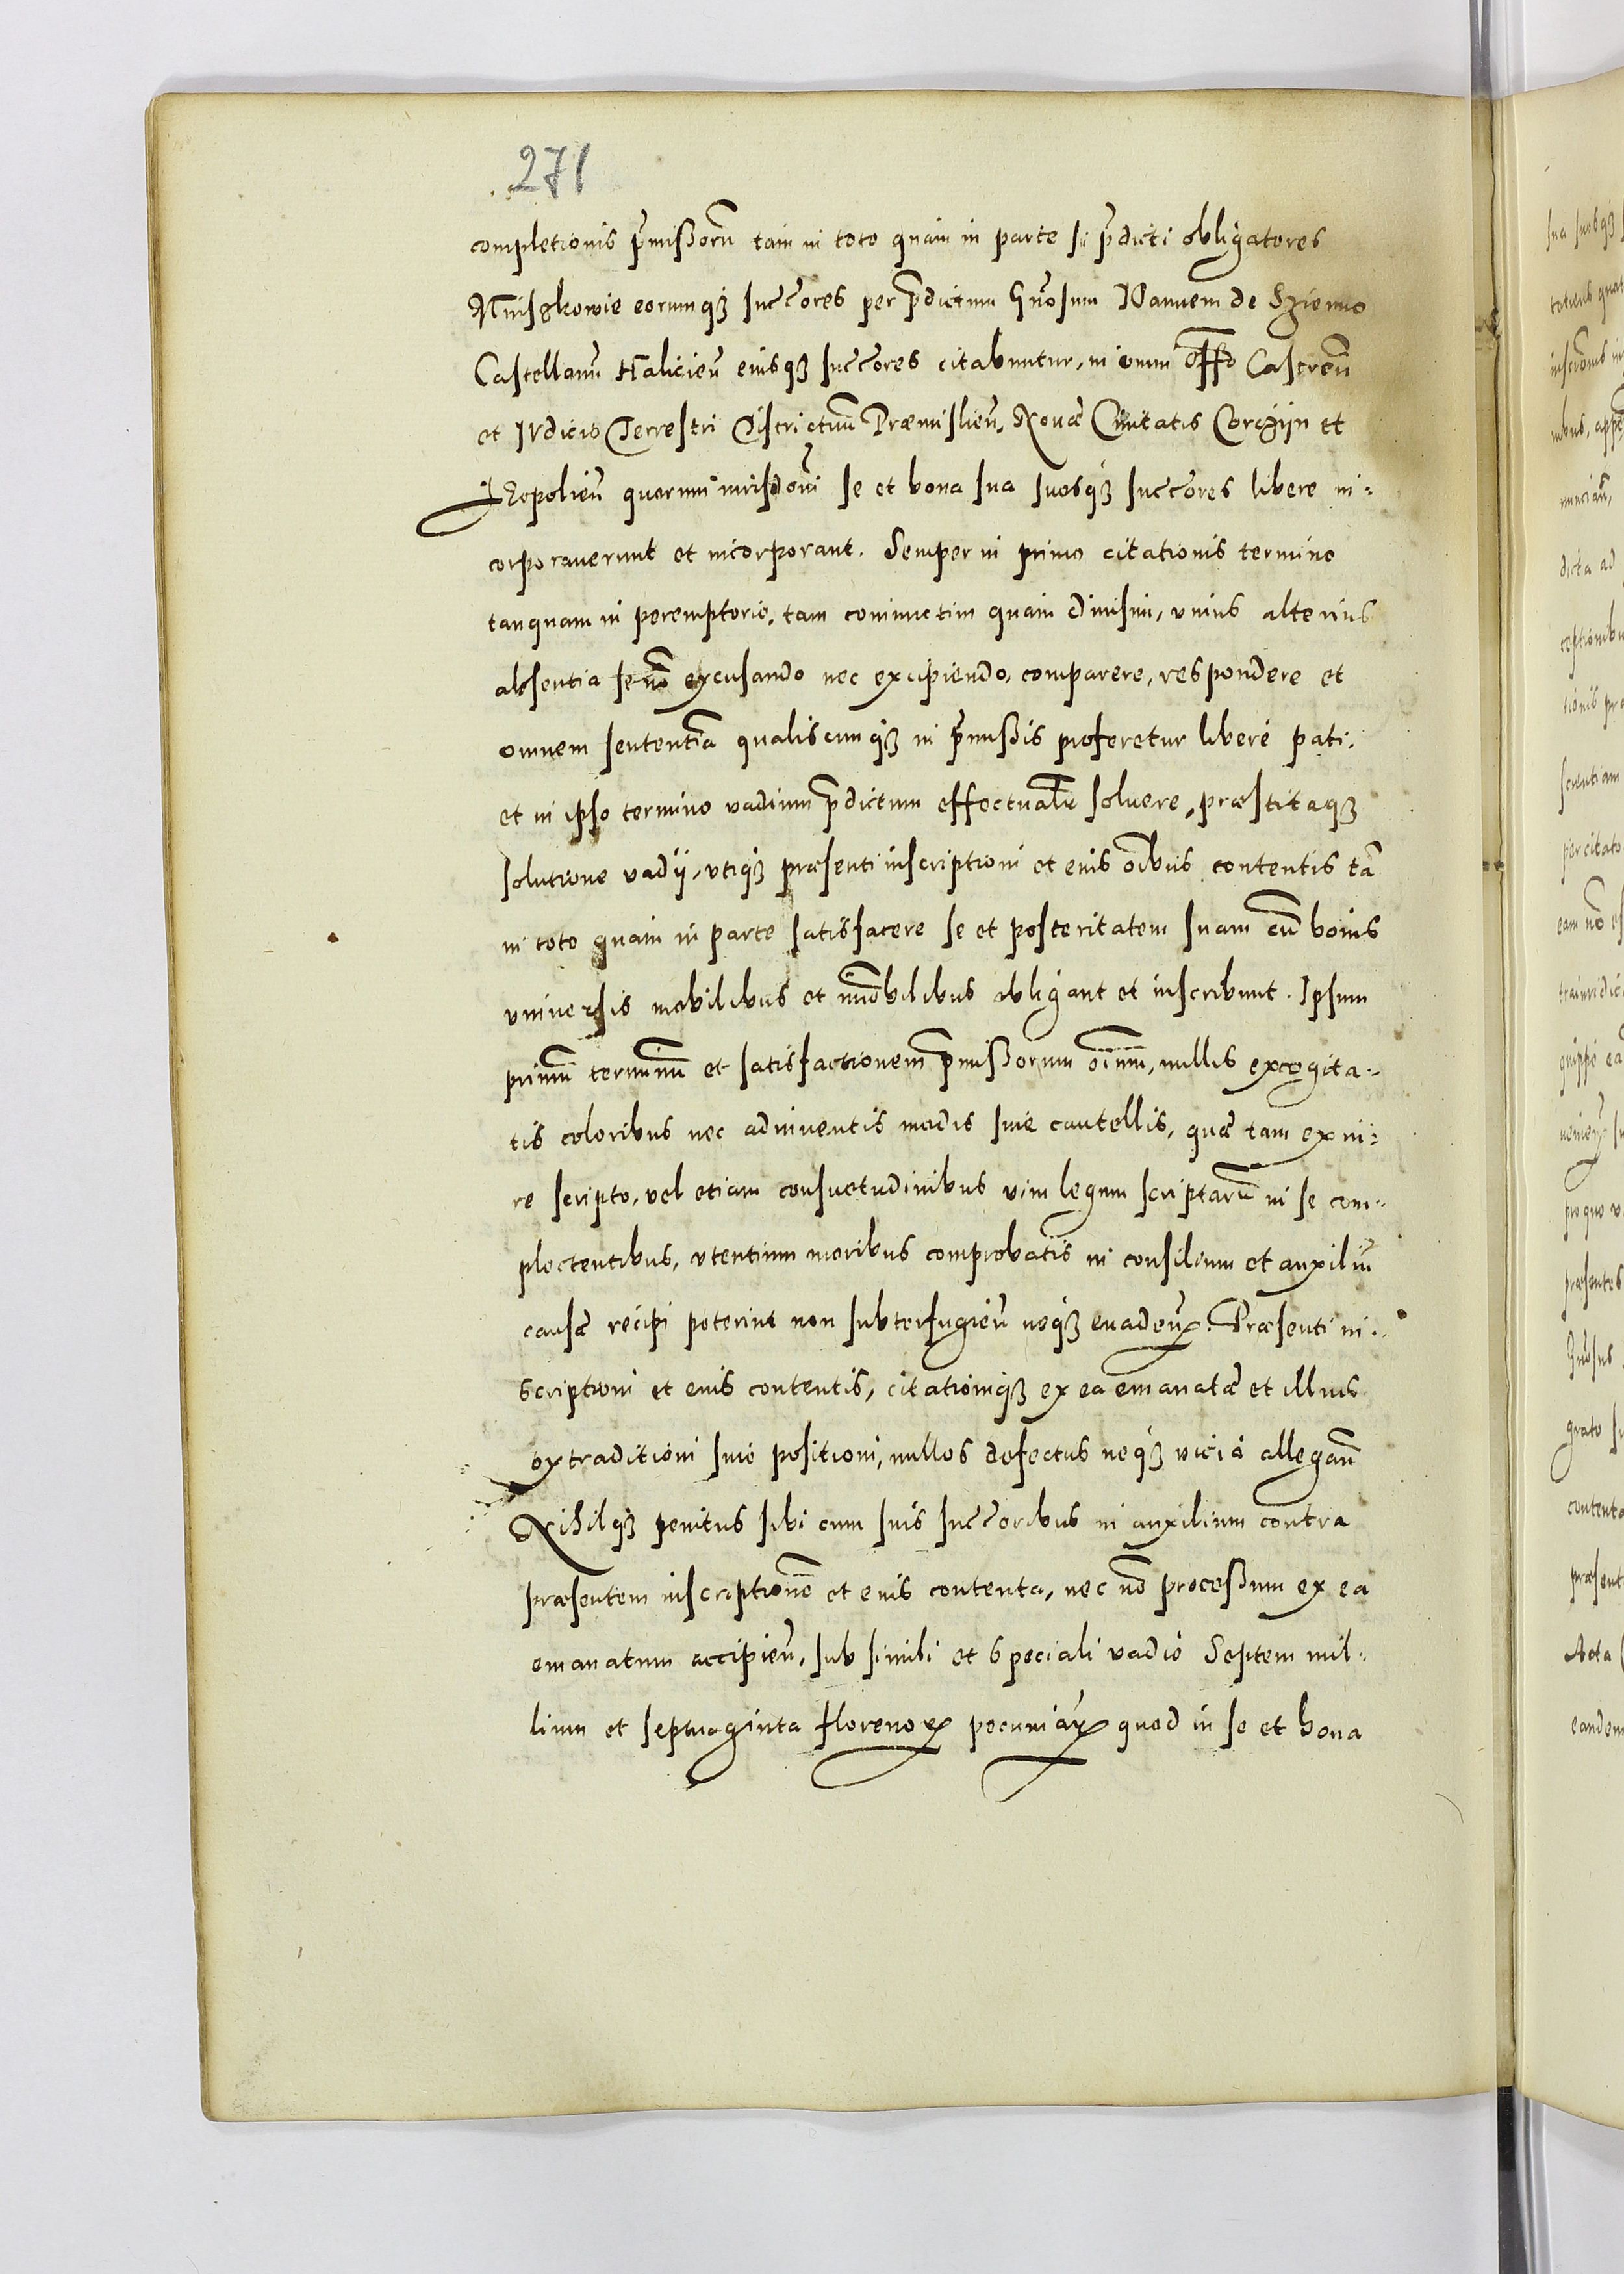 271
completionis p̄missorū tam in toto quam in parte si p̄dicti obligatores
Mniszkowie eorumqȝ succ̄ores per p̄dictum Gn̄osum Ioannem de Szienno
Castellanū Halicieñ eiusqȝ succ̄ores citabuntur, in omni offō Castreñ
et Iudicio Terrestri Districtuum Præmislieñ, Nouæ Ciuitatis Corczijn et
Leopolieñ quorum iurisdōni se et bona sua suosqȝ succ̄ores libere in-
corporauerunt et incorporant. Semper in primo citationis termino
tanquam in peremptorio, tam coniunctim quam diuisim, vnius alterius
absentia se nō excusando nec excipiendo, comparere, respondere et
omnem sententiā qualiscumqȝ in p̄missis proferetur liberè pati,
et in ipso termino vadium p̄dictum effectualr̄ soluere, præstitaqȝ
solutione vadij, vtiqȝ præsenti inscriptioni et eius oībus contentis tā
in toto quam in parte satisfacere se et posteritatem suam cū bonis
vniuersis mobilibus et imōbilibus obligant et inscribunt. Ipsum
primū terminū et satisfactionem p̄missorum oīum, nullis excogita-
tis coloribus nec adinuentis modis siue cautellis, quæ tam ex iu-
re scripto, vel etiam consuetudinibus vim legum scriptarū in se com-
plectentibus, vtentium moribus comprobatis in consilium et auxiliū
causæ recipi poterint non subterfugieñ neqȝ euadeñ. Præsenti in-
scriptioni et eius contentis, citationiqȝ ex ea emanatæ et illius
extraditioni siue positioni, nullos defectus neqȝ vicia allegañ
Nihilqȝ penitus sibi cum suis succ̄oribus in auxilium contra
præsentem inscriptionē et eius contenta, nec nō processum ex ea
emanatum accipieñ, sub simili et speciali vadio Septem mil-
lium et septuaginta florenoꝝ pecuniaꝝ quod in se et bona